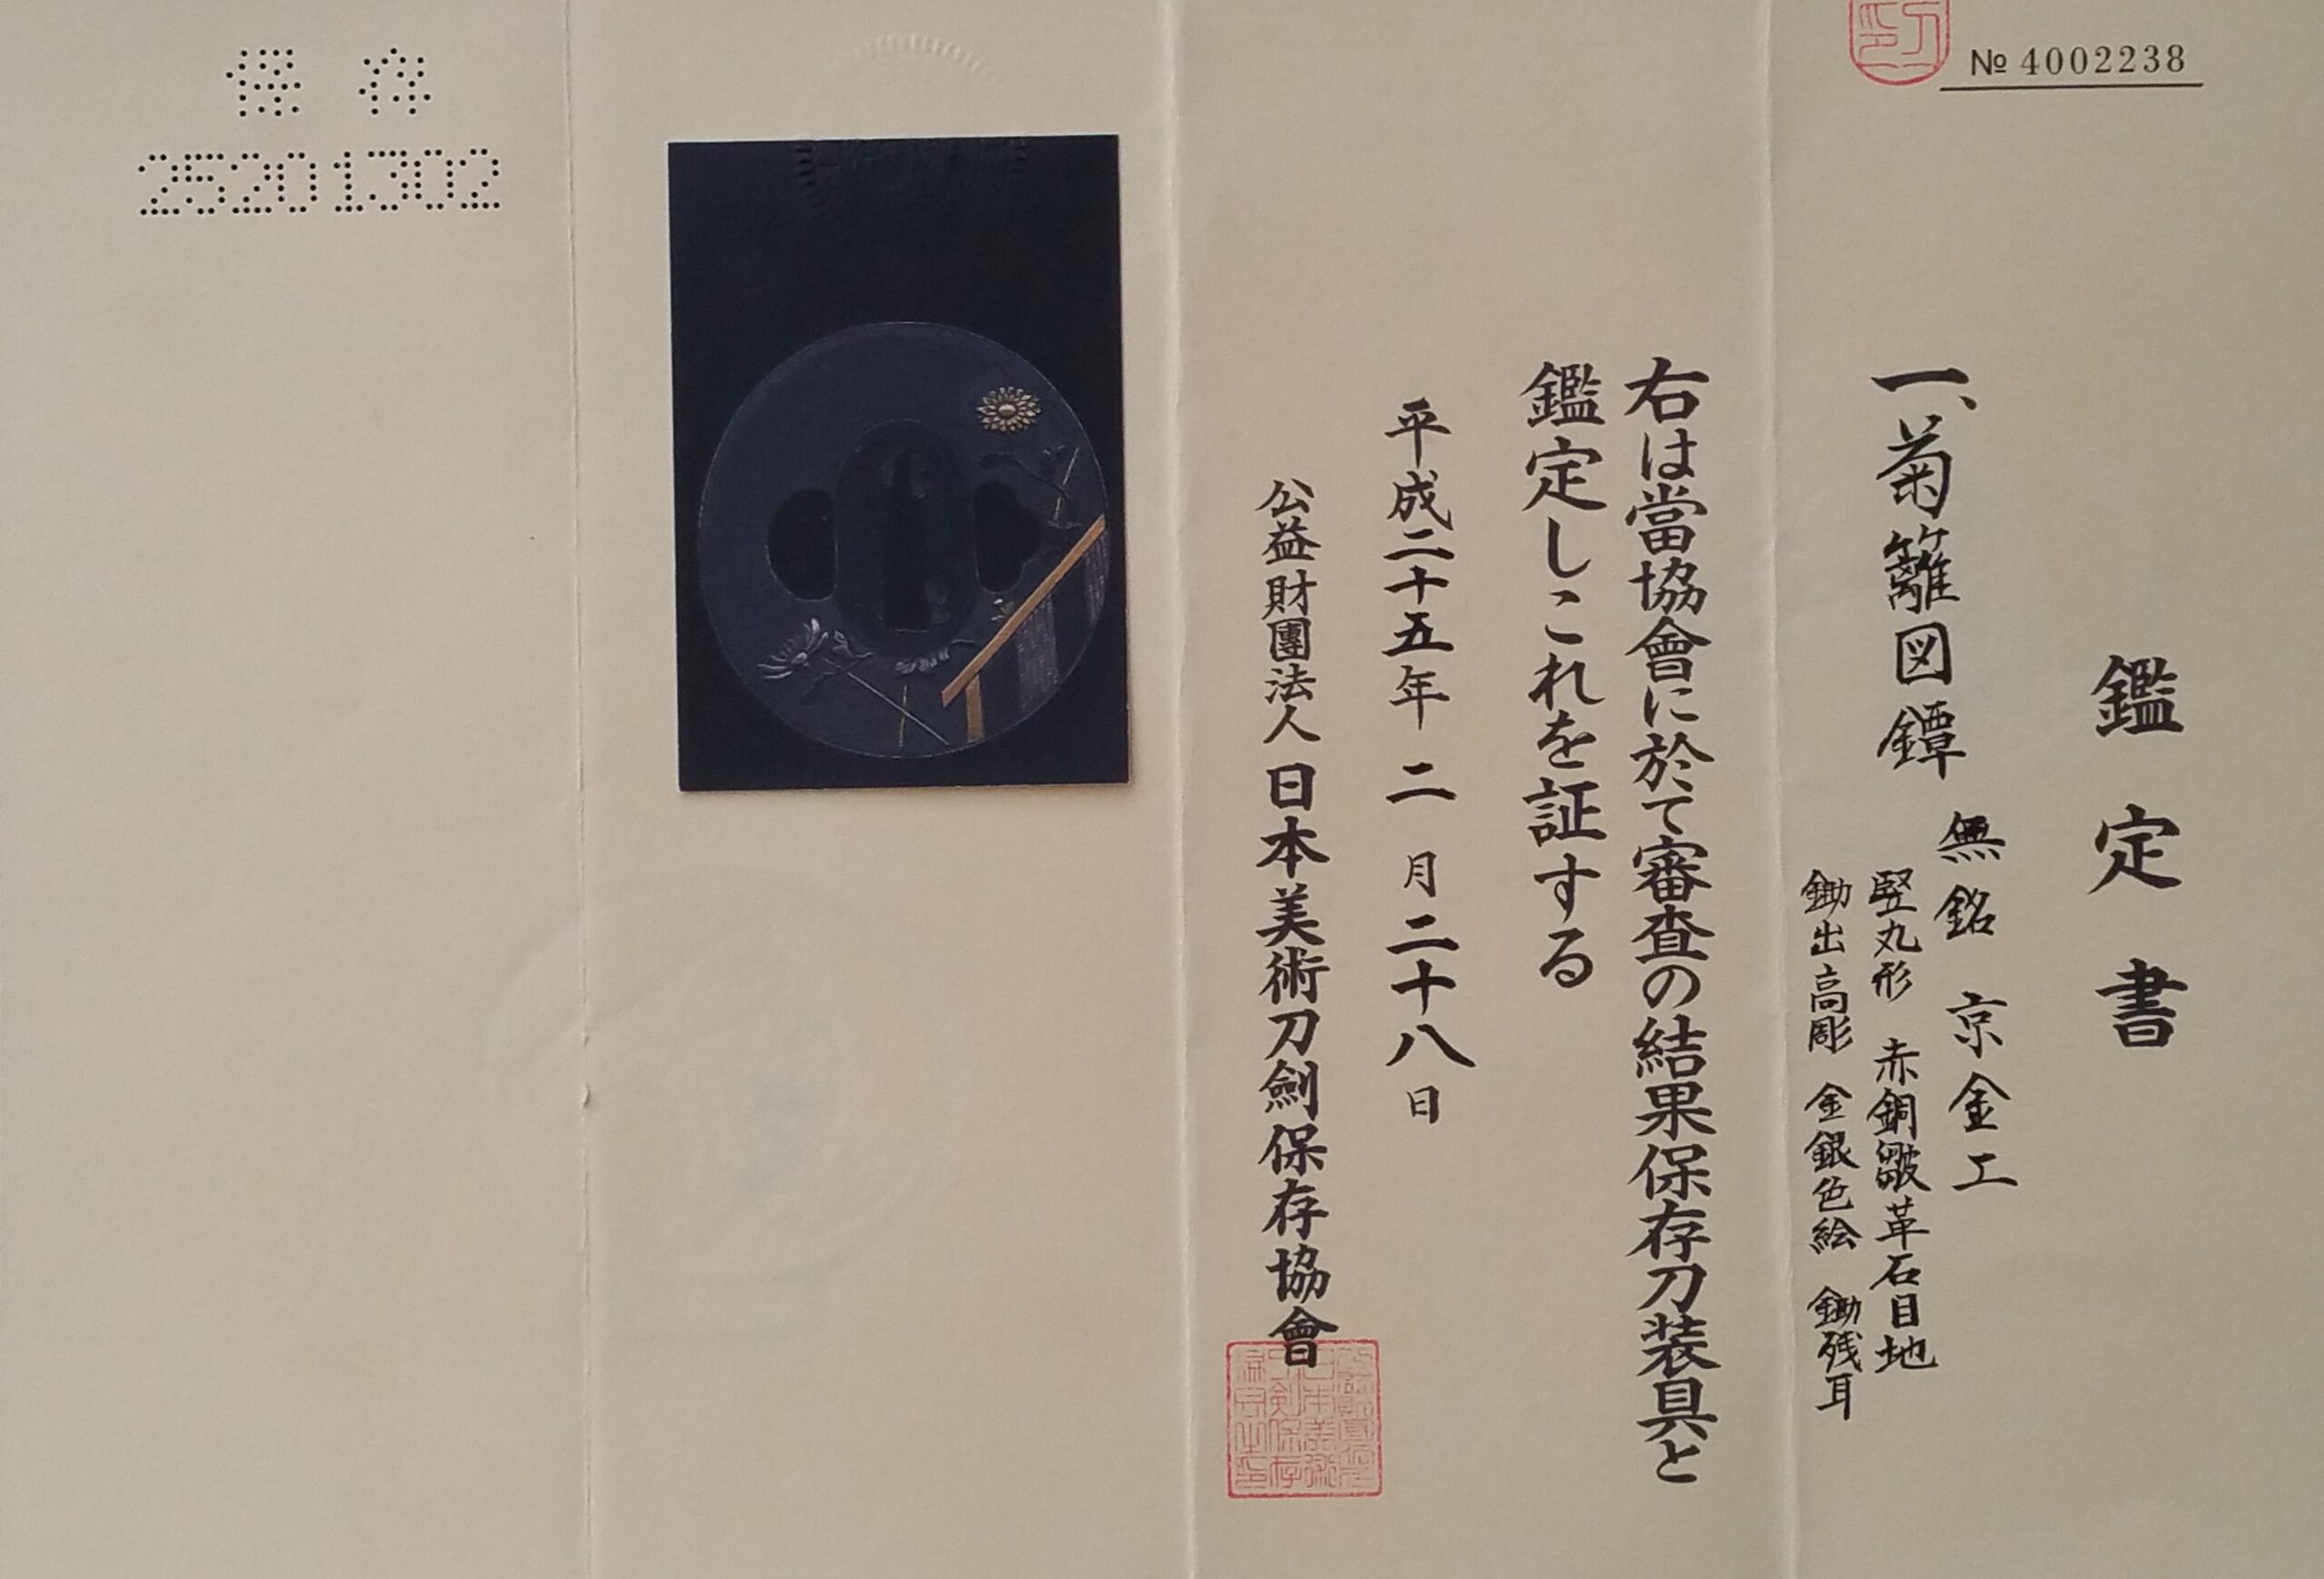 № 4002238
鑑定書
一、菊籬図鐔
無銘 京金工
竪丸形 赤銅皺革石目地
鋤出高彫 金銀色絵 鋤残耳
右は當協會に於て審査の結果保存刀装具と
鑑定しこれを証する
平成二十五年二月二十八日
公益財團法人日本美術刀劍保存協會
保存
25201302